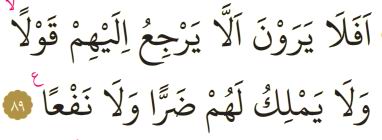 اَفَلَا يَرَوْنَ اَلَّا يَرْجِعُ اِلَيْهِمْ قَوْلًاۙ
وَلَا يَمْلِكُ لَهُمْ ضَرًّا وَلَا نَفْعًاࣖ ﴿٨٩﴾